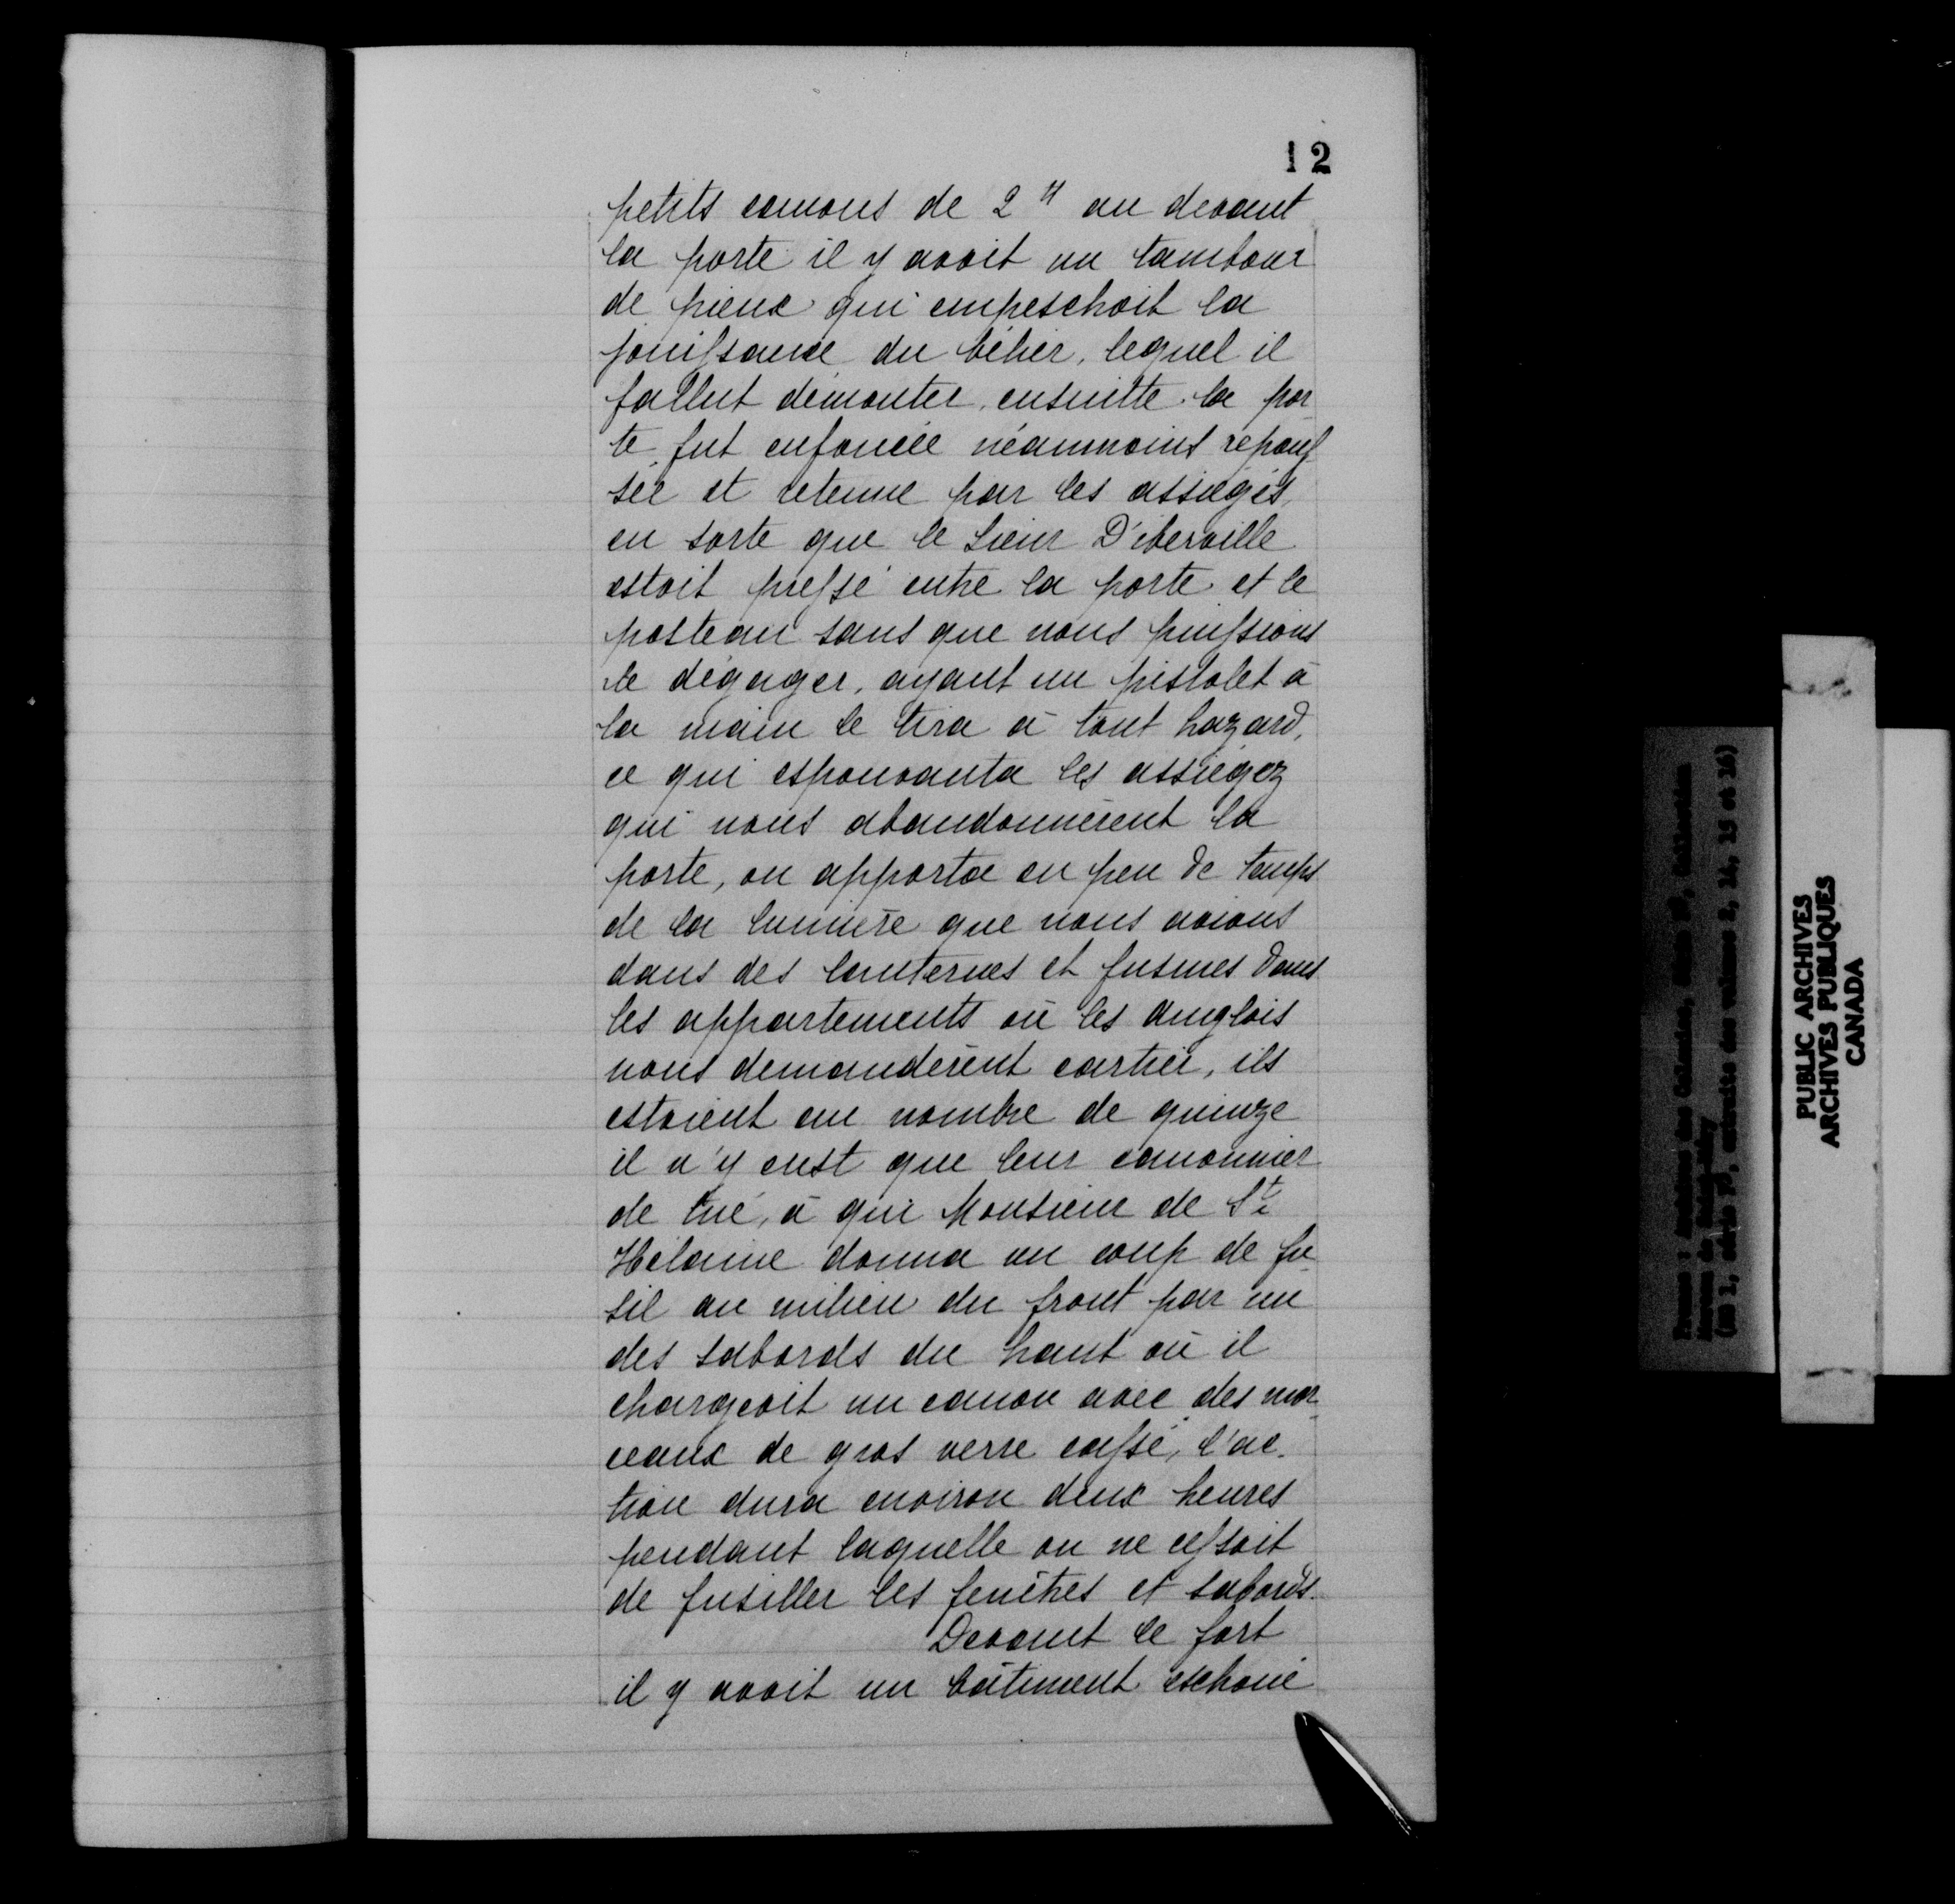 12
petits canons de 2 # au devant
la porte il y avoit un tambour
de pieux qui empeschoit la
jouissance du bélier, lequel il
fallut démonter, ensuitte la por
te fut enfoncée néanmoins repous
sée et retenue par les assiégés,
en sorte que le Sieur D'iberville
estoit pressé entre la porte et le
posteau sans que nous puissions
le dégager, ayant un pistolet à
la main le tira à tout hazard,
ce qui espouvanta les assiégez
qui nous abandonnèrent la
porte, on apporta en peu de temps
de la lumière que nous avions
dans des lanternes et fusmes dans
les appartements où les Anglois
nous demandèrent cartier, ils
estoient au nombre de quinze
il n'y eust que leur canonnier
de tué, à qui Monsieur de Ste
Hélaine donna un coup de fu
sil au milieu du front par un
des sabords du haut où il
chargeoit un canon avec des mor
ceaux de gros verre cassé, l'ac-
tion dura environ deux heures
pendant laquelle on ne cessoit
de fusiller les fenêtres et sabords.
Devant le fort
il y avoit un bâtiment eschoué
PUBLIC ARCHIVES
ARCHIVES PUBLIQUES
CANADA